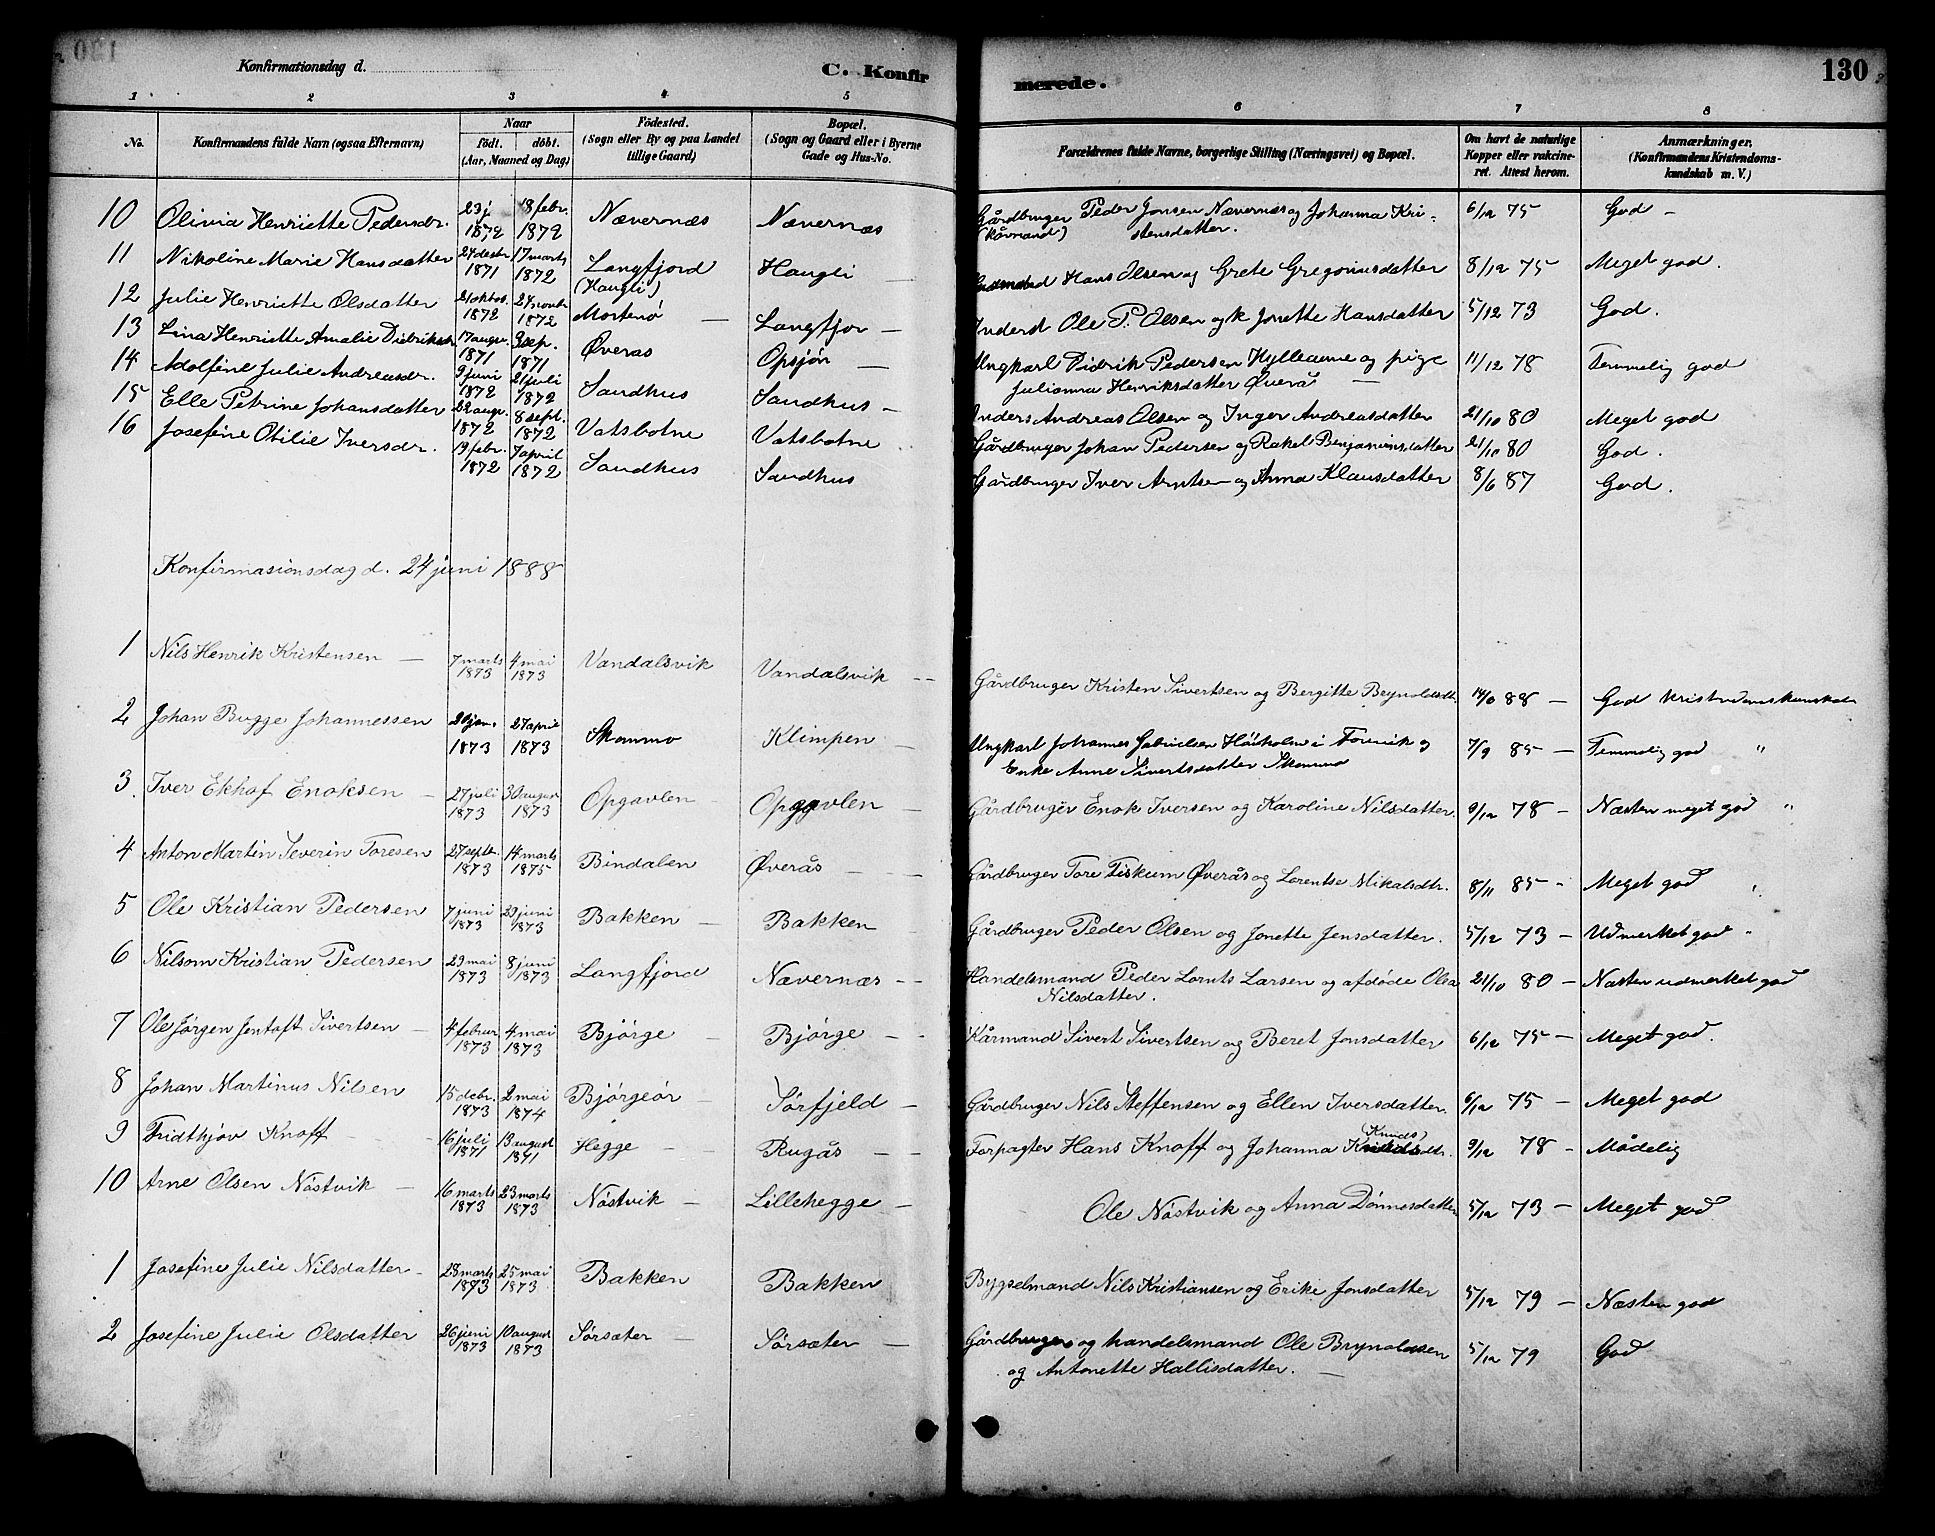 Konfirmationsdag d.
C. Konfir
merede.
130
1 2 3 4 5 6 7 8
No.
Konfirmandens fulde Navn (ogsaa Efternavn)
Naar
födt. döbt.
(Aar, Maaned og Dag)
Födested.
(Sogn eller By og paa Landet
tillige Gaard)
Bopæl.
(Sogn og Gaard eller i Byerne
Gade og Hus-No.
Forældrenes fulde Navne, borgerlige Stilling (Næringsvei) og Bopæl.
Om havt de naturlige
Kopper eller vakcine-
ret. Attest herom.
Anmærkninger.
(Konfirmandens Kristendoms-
kundskab m. V.)
10 Olivia Henriette Pedersdr. 23 j 1872 18 febr. 1872 Nævernæs Nævernæs Gårdbruger Peder Jonsen Nævernæs og Johanna Kri-
(Kårmand) stensdatter. 6/12 75 God -
11 Nikoline Marie Hansdatter 24 desbr 1871 17 marts 1872 Langfjord (Haugli) Haugli Hans Olsen og Grete Gregoriusdatter 8/12 75 Meget god.
12 Julie Henriette Olsdatter 21 oktob. 1872 24 novbr 1872 Mortenø - Langfjor - Inderst Ole P. Olsen og k Jonette Hansdatter 5/12 73 God.
13 Lina Henriette Amalie Didriksdr 17 augu. 1871 3 sep. 1871 Øveras Opsjøn - Ungkarl Didrik Pedersen Hylleaune og pige
Julianna Henriksdatter Øverå - 11/12 78 Temmelig god
14 Adolfine Julie Andreasdr. 9 juni 1872 21 juli 1872 Sandhus Sandhus - Inders Andreas Olsen og Inger Andreasdatter 21/10 80 Meget god
15 Elle Petrine Johansdatter 22 augu. 1872 8 sept. 1872 Vatsbotne Vatsbotne Gårdbruger Johan Pedersen og Rakel Benjaminsdatter 21/10 80 God.
16 Josefine Otilie Iversdr. 19 febr. 1872 7 april 1872 Sandhus Sandhus Gårdbruger Iver Arntsen og Anna Klausdatter 8/6 87 God.
Konfirmasionsdag d. 24 juni 1888
1 Nils Henrik Kristensen - 7 marts 1873 4 mai 1873 Vandalsvik Vandalsvik -- Gårdbruger Kristen Sivertsen og Bergitte Brynoldsdtr. 88 - God Kristendomskundskab
2 Johan Bugge Johannessen 20 jan. 1873 27 april 1873 Skommo Klimpen - Ungkarl Johannes Gabrielsen Høiholm i og
Enke Anne Sivertsdatter Skommo 7/9 85 - Temmelig god "
3. Iver Ekhof Enoksen - 27 juli 1873 30 august 1873 Opgavlen - Opgavlen - Gårdbruger Enok Iversen og Karoline Nilsdatter. 9/12 78 - Næsten meget god "
4 Anton Martin Severin Toresen 27 septe. 1873 14 marts 1875 Bindalen Øverås - - - Gårdbruger Tore Fiskum Øverås og Lorentse Mikalsdtr. 8/11 85 - Meget god "
5 Ole Kristian Pedersen 7 juni 1873 29 juni 1873 Bakken - Bakken Gårdbruger Peder Olsen og Jonette Jensdatter. 5/12 73 - Udmerket god "
6 Nilsom Kristian Pedersen 29 mai 1873 8 juni 1873 Langfjord Nævernæs -- Handelsmand Peder Lornts Larsen og afdøde Olea
Nilsdatter. 21/10 80 - Næsten udmerket god
7 Ole Jørgen Jentoft Sivertsen - 4 februr 1873 4 mai 1873 Bjørge - Bjørge -- Kårmand Sivert Sivertsen og Beret Jonsdatter 6/12 75 - Meget god.
8 Johan Martinus Nilsen 15 debr. 1873 2 mai 1874 Bjørgeør - Sørfjeld - Gårdbruger Nils Steffensen og Ellen Iversdatter. 6/12 75 - Meget god
9 Fridthjov Knoff - 16 juli 1871 13 august 1871 Hegge - - Rugås -- Forpagter Hans Knoff og Johanna (Knuds) 9/12 78 - Mådelig
10 Arne Olsen Nøstvik - 16 marts 1873 23 marts 1873 Nøstvik - Lillehegge - Ole Nøstvik og Anna Dønnesdatter 5/12 73 - Meget god
1 Josefine Julie Nilsdatter - 28 marts 1873 25 mai 1873 Bakken Bakken Bygselmand Nils Kristiansen og Erike Jonsdatter 5/12 79 - Næsten god
2 Josefine Julie Olsdatter 26 juni 1873 10 august 1873 Sørsæter - Sørsæter - Gårdbruger og handelsmand Ole Brynoldsen
og Antonette Hallisdatter. - 5/12 79 God